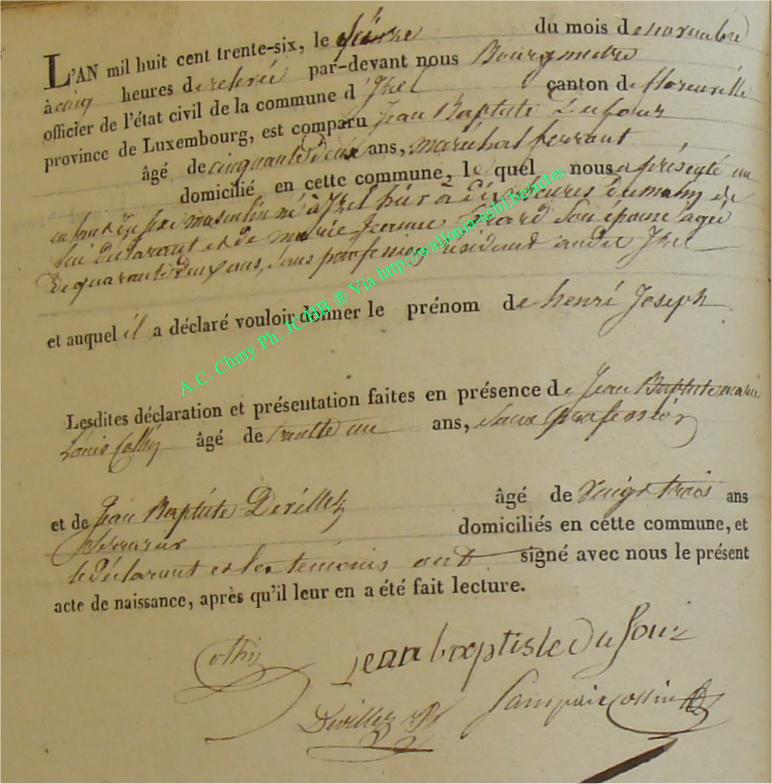 L'AN mil huit cent trente-six, le seize du mois de novembre
à cinq heures de relevée par-devant nous Bourgmetre
officier de l'état civil de la commune d'Izel canton de florenville
province de Luxembourg, est comparu Jean Baptiste Dufour
âgé de cinquante deux ans, maréchal ferrant
domicilié en cette commune, lequel nous a présenté un
enfant du sexe masculin né à Izel hier à dix heures du matin de
lui déclarant et de marie Jeanne son épouse agée
de quarante deux ans, sans profession résident audit Izel
et auquel il a déclaré vouloir donner le prénom de henri Joseph
Lesdites déclaration et présentation faites en présence de Jean Baptiste marie
Louis Collin âgé de trente un ans, sans profession
et de Jean Baptiste Devillez âgé de vingt trois ans
serrurier domiciliés en cette commune, et
le déclarant et les temoins ont signé avec nous le présent
acte de naissance, après qu'il leur en a été fait lecture.
jean baptiste Dufour
Devillez
A.C. Chiny Ph. JC HB ® Via http://wallonia-asbl.be/actes